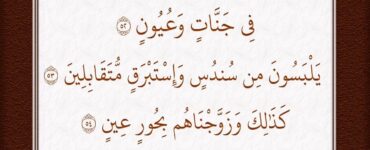 فِى جَنَّاتٍ وَعُيُونٍ ۝٥٢
يَلْبَسُونَ مِن سُندُسٍ وَإِسْتَبْرَقٍ مُّتَقَابِلِينَ ۝٥٣
كَذَٰلِكَ وَزَوَّجْنَاهُم بِحُورٍ عِينٍ ۝٥٤